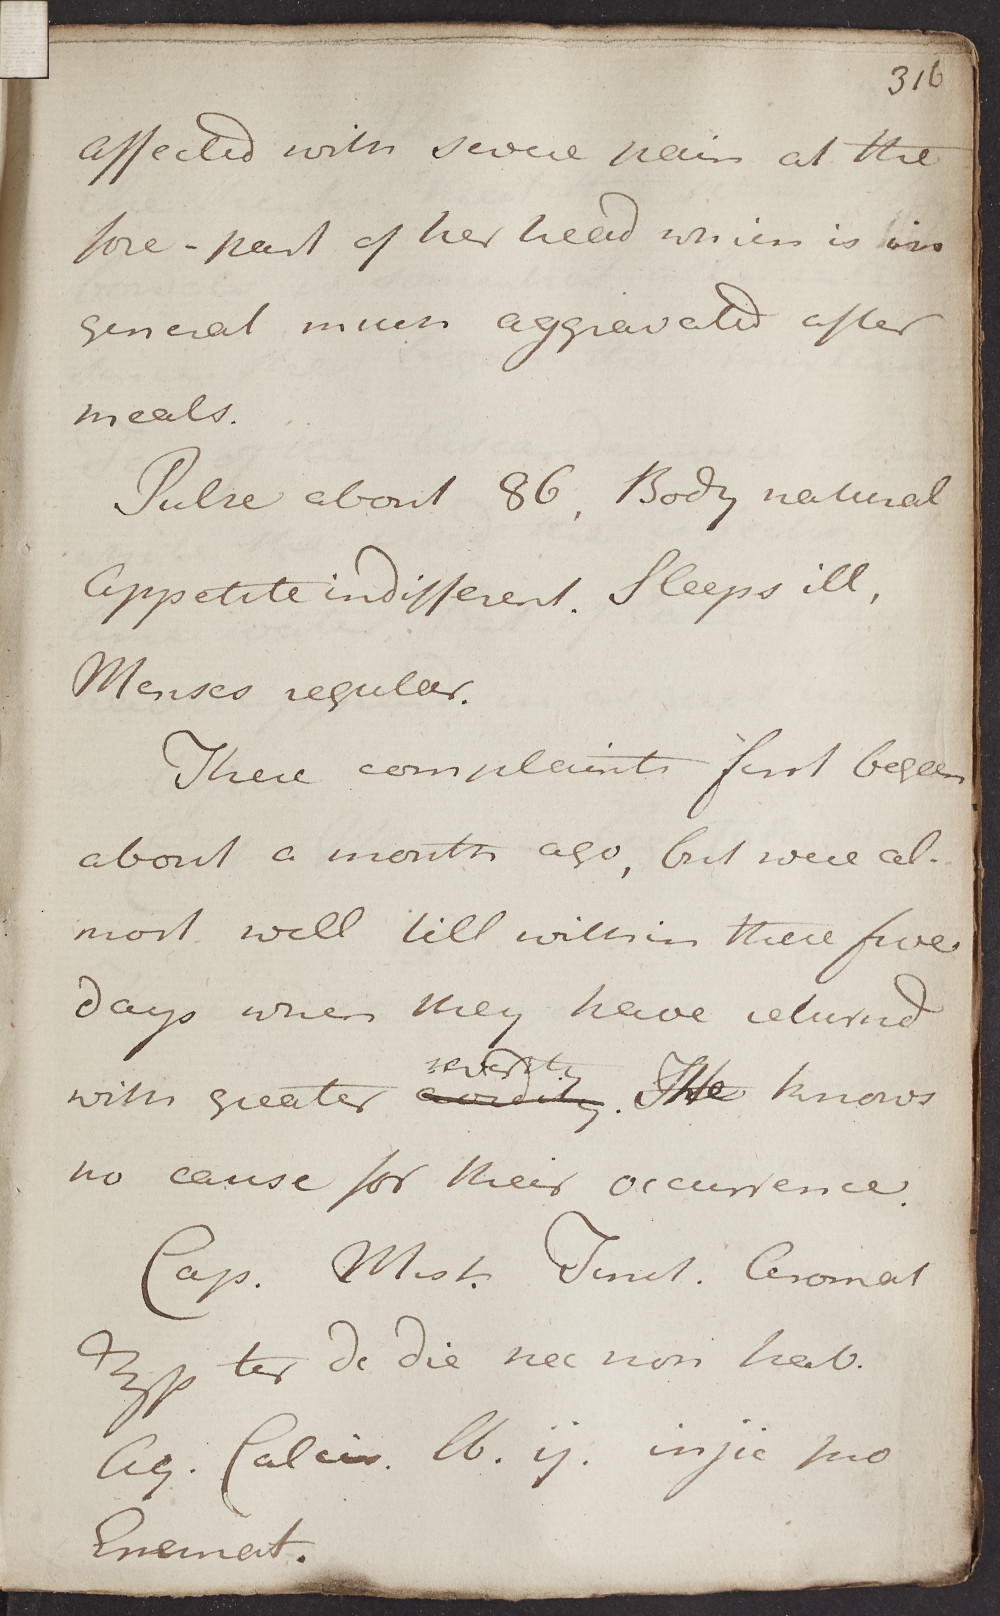 316
affected with severe pain at the
fore-part of her head which is in
general much aggravated after
meals.
Pulse about 86, Body natural
Appetite indifferent. Sleeps ill,
Menses regular.
These complaints first began
about a month ago, but were al-
most well till within these five
days when they have returnd
with greater severity acidity. She knows
no cause for their occurrence.
Cap. Mist. Tinct. Aromat
℥ss ter de die nec non hab.
Aq. Calcis. lb. ij. injic pro
Enemat.